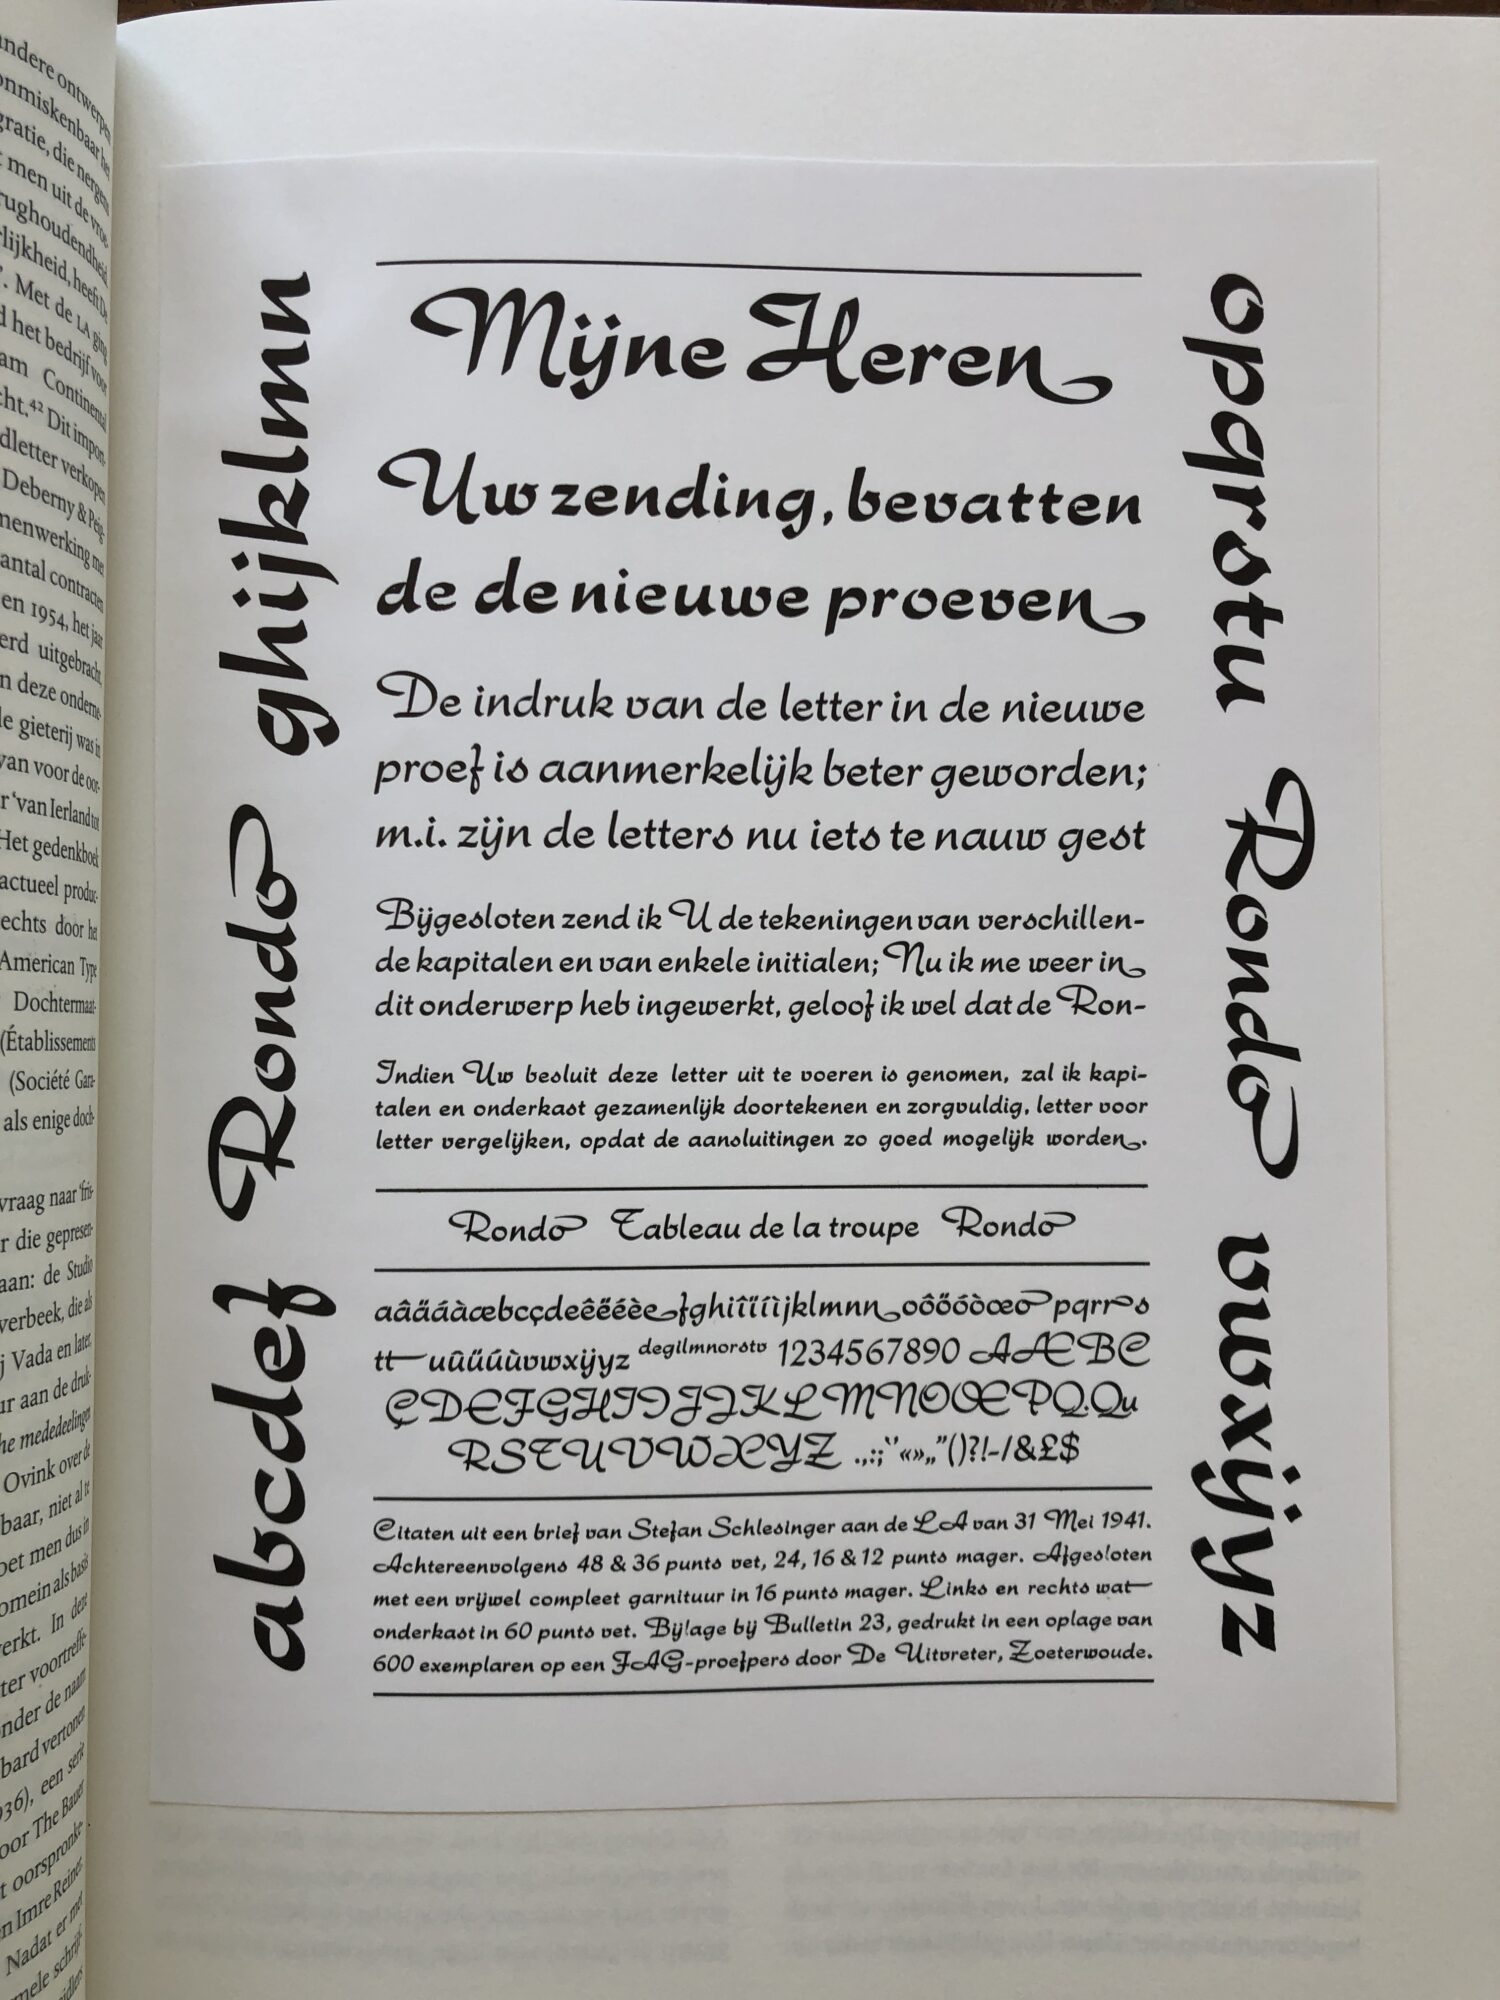 andere ontwerpen
onmiskenbaar het
gratie, die nergens
t men uit de vroe-
rughoudendheid
rlijkheid, heeft De
'. Met de LA ging
d het bedrijf voor
am Continental
cht.⁴² Dit impon-
dletter verkopen
Deberny & Peig-
menwerking met
antal contracten
en 1954, het jaar
erd uitgebracht,
n deze onderne-
le gieterij was in
van voor de oor-
r 'van Ierland tot
Het gedenkboek
actueel produc-
echts door het
American Type
Dochtermaat-
(Établissements
(Société Gara-
als enige doch-
vraag naar 'fris-
r die gepresen-
aan: de Studio
verbeek, die als
j Vada en later,
ur aan de druk-
he mededeelingen
Ovink over de
baar, niet al te
oet men dus in
omein als basis
verkt. In deze
ter voortreffe-
onder de naam
bard vertonen
936), een serie
oor The Bauer
t oorspronke-
n Imre Reiner,
Nadat er met
mele schrijf-
eidlers
abcdef Rondo ghijklmn
Mijne Heren
Uw zending, bevatten
de de nieuwe proeven
De indruk van de letter in de nieuwe
proef is aanmerkelijk beter geworden;
m.i. zijn de letters nu iets te nauw gest
Bijgesloten zend ik U de tekeningen van verschillen-
de kapitalen en van enkele initialen; Nu ik me weer in
dit onderwerp heb ingewerkt, geloof ik wel dat de Ron-
Indien Uw besluit deze letter uit te voeren is genomen, zal ik kapi-
talen en onderkast gezamenlijk doortekenen en zorgvuldig, letter voor
letter vergelijken, opdat de aansluitingen zo goed mogelijk worden.
Rondo Tableau de la troupe Rondo
aâäáàæbcçdeêëéèefghiîïíìjklmnnoôöóòœopqrrs
ttuûüúùvwxijyz degilmnorstv 1234567890 AÆBC
ÇDEFGHIIJJKLMNOŒPQ.Qu
RSTUVWXYZ .,:;'`«»„"()?!-/&£$
Citaten uit een brief van Stefan Schlesinger aan de LA van 31 Mei 1941.
Achtereenvolgens 48 & 36 punts vet, 24, 16 & 12 punts mager. Afgesloten
met een vrijwel compleet garnituur in 16 punts mager. Links en rechts wat
onderkast in 60 punts vet. Bijlage bij Bulletin 23, gedrukt in een oplage van
600 exemplaren op een FAG-proefpers door De Uitvreter, Zoeterwoude.
opqrstu Rondo vwxijyz